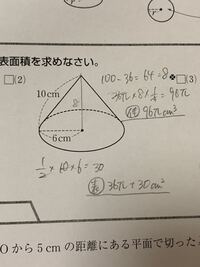 表面積を求めなさい。
□(2)
10cm
8
6cm
100-36=64=8
□(3)
36π×8×1/3=96π
体 96πcm³
1/2×10×6=30
表 36π+30cm²
Oから5cmの距離にある平面で切った